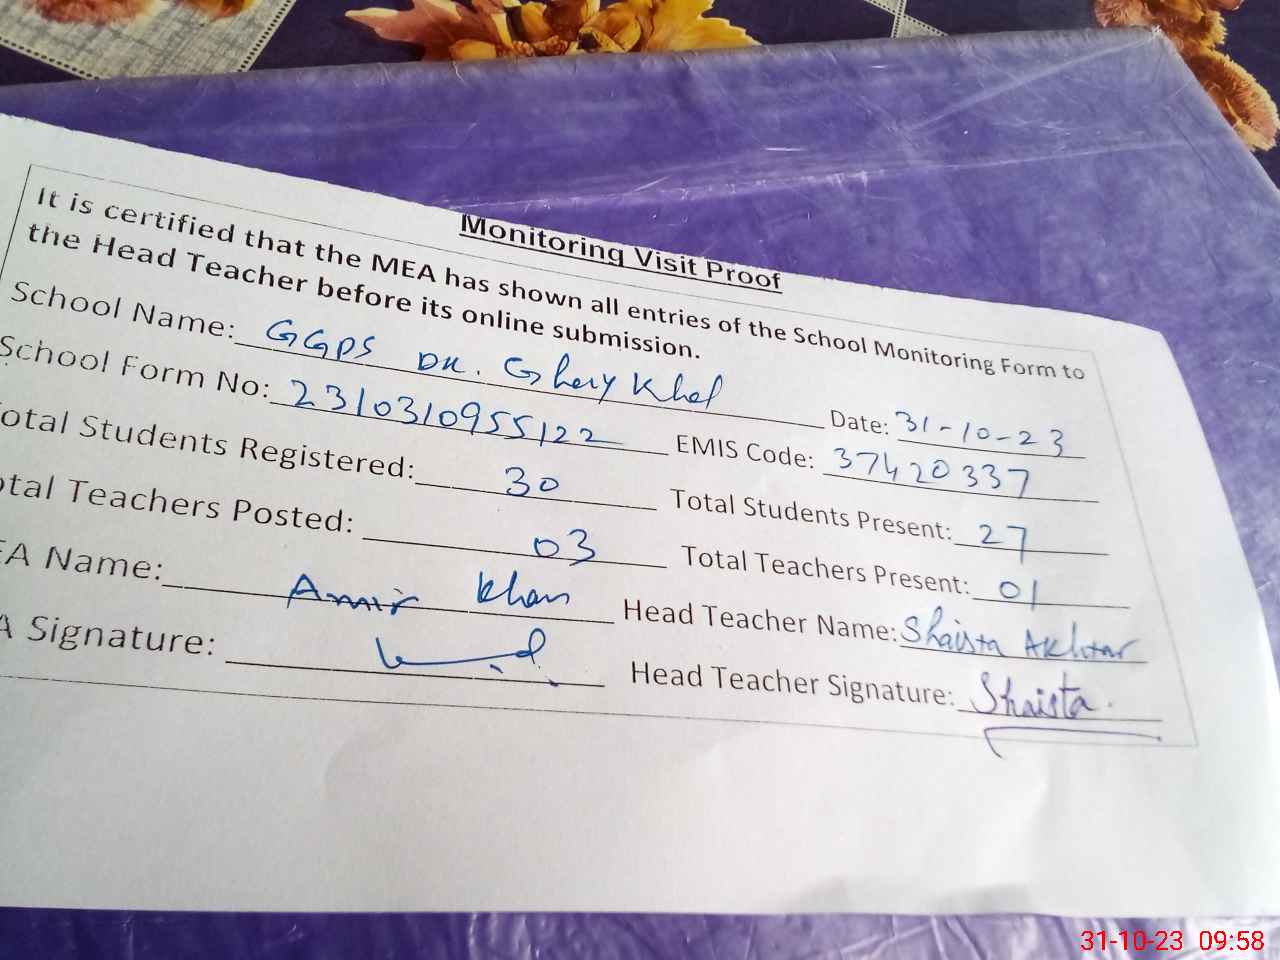 Monitoring Visit Proof
It is certified that the MEA has shown all entries of the School Monitoring Form to
the Head Teacher before its online submission.
School Name: GGPS DK. Ghery Khel Date: 31-10-23
School Form No: 2310310955122 EMIS Code: 37420337
otal Students Registered: 30 Total Students Present: 27
otal Teachers Posted: 03 Total Teachers Present: 01
EA Name: Amir Khan Head Teacher Name: Shaista Akhtar
A Signature: Head Teacher Signature: Shaista.
31-10-23 09:58